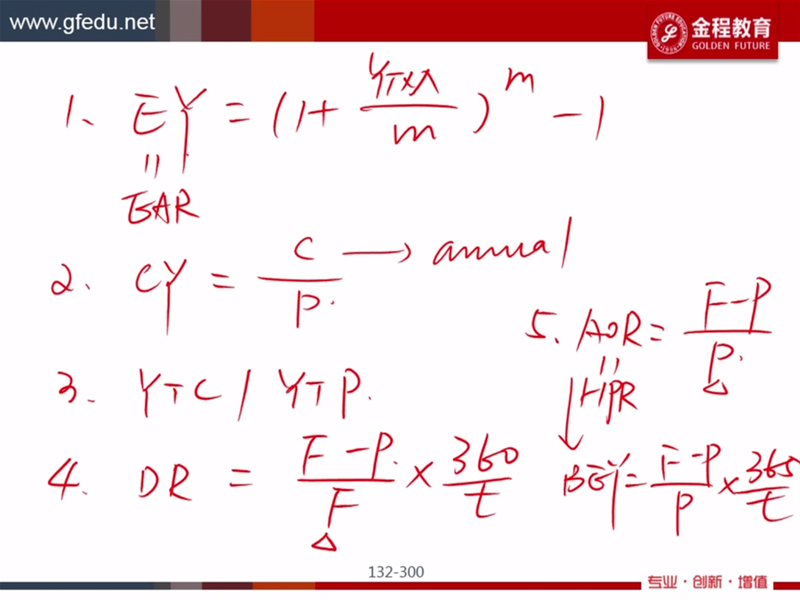 www.gfedu.net
金程教育
GOLDEN FUTURE
1. EY = (1 + YTM/m)^m - 1
=
EAR
2. CY = C/P. → annual
3. YTC / YTP.
4. DR = F-P./F × 360/t
5. AOR = F-P/P.
=
HPR
BEY = F-P/P × 365/t
132-300
专业·创新·增值